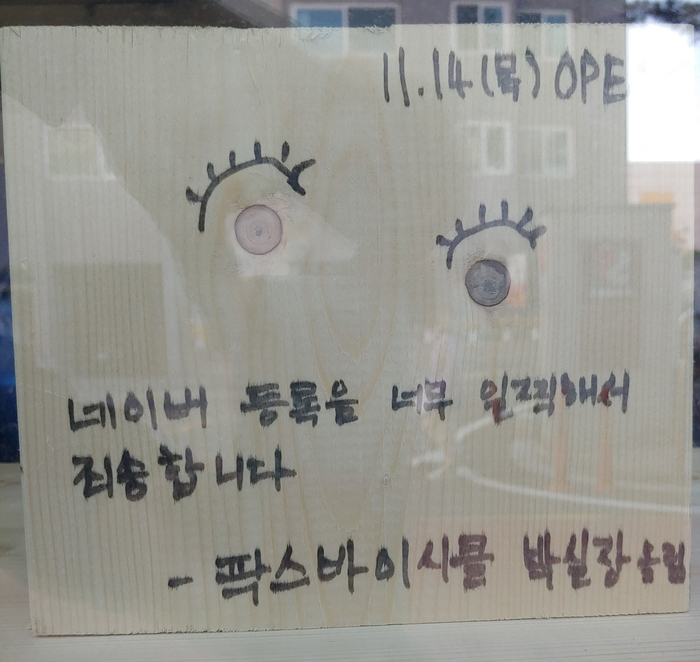 11.14(목) OPE
네이버 등록을 너무 일찍해서
죄송합니다
- 팍스바이시클 박실장 올림